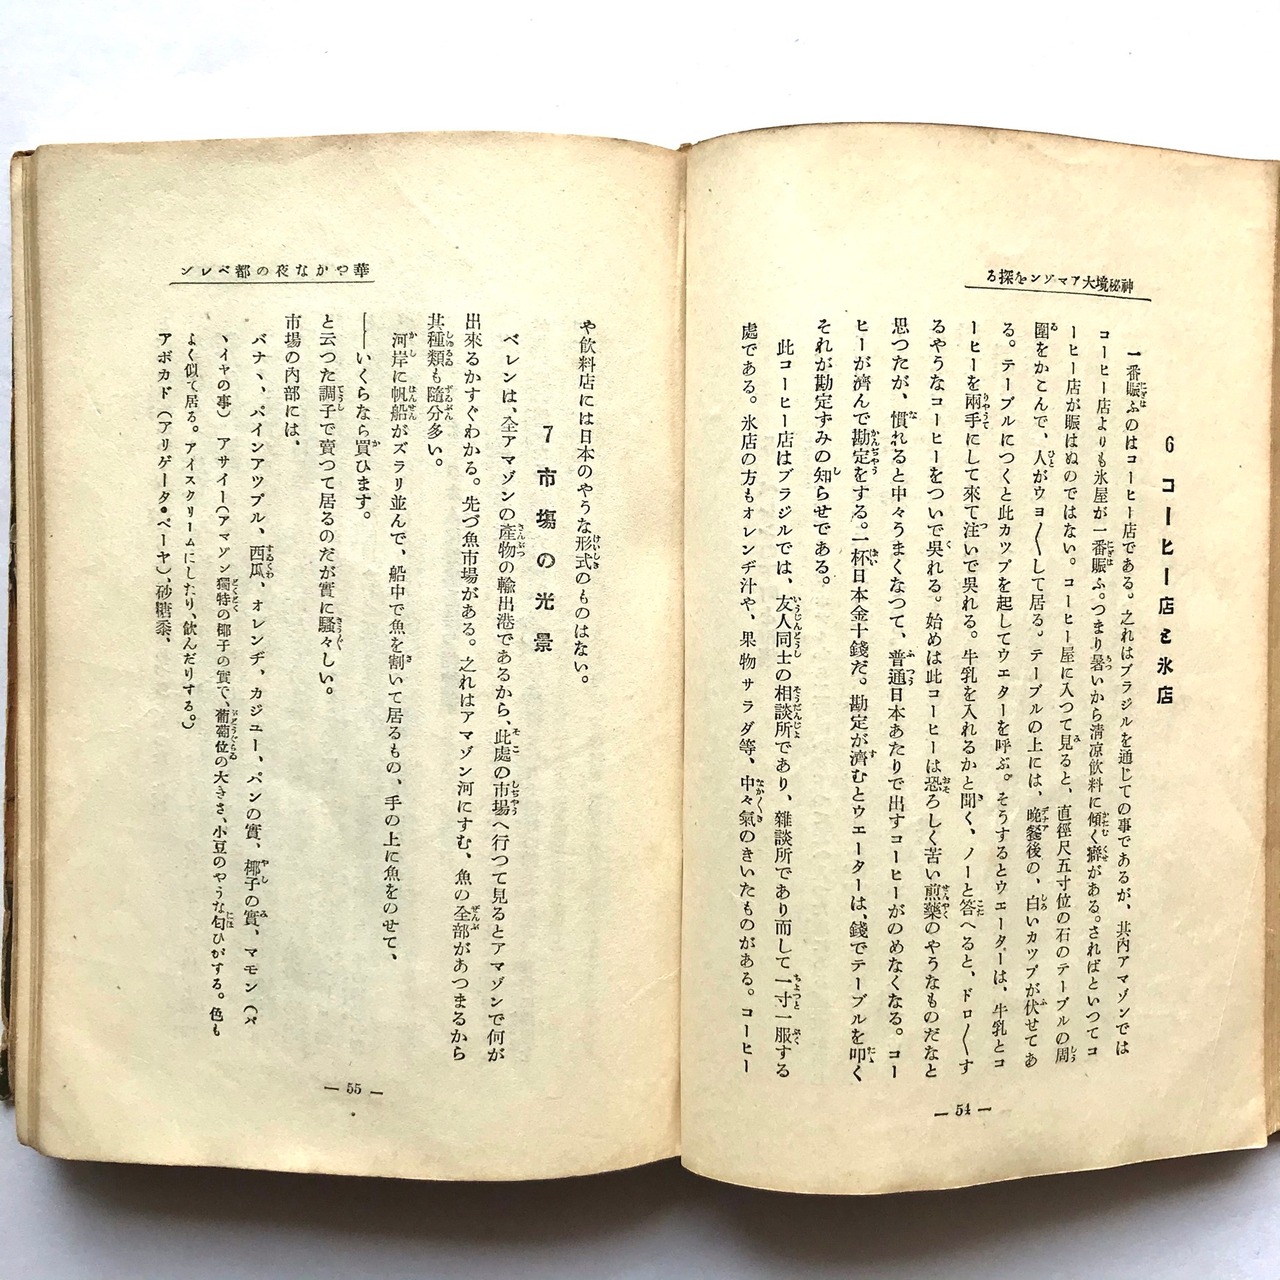 神秘境大アマゾンを探る
6 コーヒー店と氷店
一番賑ふのはコーヒー店である。之れはブラジルを通じての事であるが、其內アマゾンでは
コーヒー店よりも氷屋が一番賑ふ。つまり暑いから清涼飲料に傾く癖がある。さればといつてコ
ーヒー店が賑はぬのではない。コーヒー屋に入つて見ると、直徑尺五寸位の石のテーブルの周
圍をかこんで、人がウヨ〱して居る。テーブルの上には、晩餐後の、白いカツプが伏せてあ
る。テーブルにつくと此カツプを起してウエターを呼ぶ。そうするとウエーターは、牛乳とコ
ーヒーを兩手にして來て注いで吳れる。牛乳を入れるかと聞く、ノーと答へると、ドロ〱す
るやうなコーヒーをついで吳れる。始めは此コーヒーは恐ろしく苦い煎藥のやうなものだなと
思つたが、慣れると中々うまくなつて、普通日本あたりで出すコーヒーがのめなくなる。コー
ヒーが濟んで勘定をする。一杯日本金十錢だ。勘定が濟むとウエーターは、錢でテーブルを叩く
それが勘定ずみの知らせである。
此コーヒー店はブラジルでは、友人同士の相談所であり、雜談所であり而して一寸一服する
處である。氷店の方もオレンヂ汁や、果物サラダ等、中々氣のきいたものがある。コーヒー
— 54 —
華やかな夜の都ベレン
や飲料店には日本のやうな形式のものはない。
7 市場の光景
ベレンは、全アマゾンの產物の輸出港であるから、此處の市場へ行つて見るとアマゾンで何が
出來るかすぐわかる。先づ魚市場がある。之れはアマゾン河にすむ、魚の全部があつまるから
其種類も隨分多い。
河岸に帆船がズラリ並んで、船中で魚を割いて居るもの、手の上に魚をのせて、
——いくらなら買ひます。
と云つた調子で賣つて居るのだが實に騷々しい。
市場の內部には、
バナヽ、パインアツプル、西瓜、オレンヂ、カジユー、パンの實、椰子の實、マモン（パ
ヽイヤの事）アサイー（アマゾン獨特の椰子の實で、葡萄位の大きさ、小豆のやうな匂ひがする。色も
よく似て居る。アイスクリームにしたり、飲んだりする。）
アボカド（アリゲータ・ペーヤ）、砂糖黍、
— 55 —